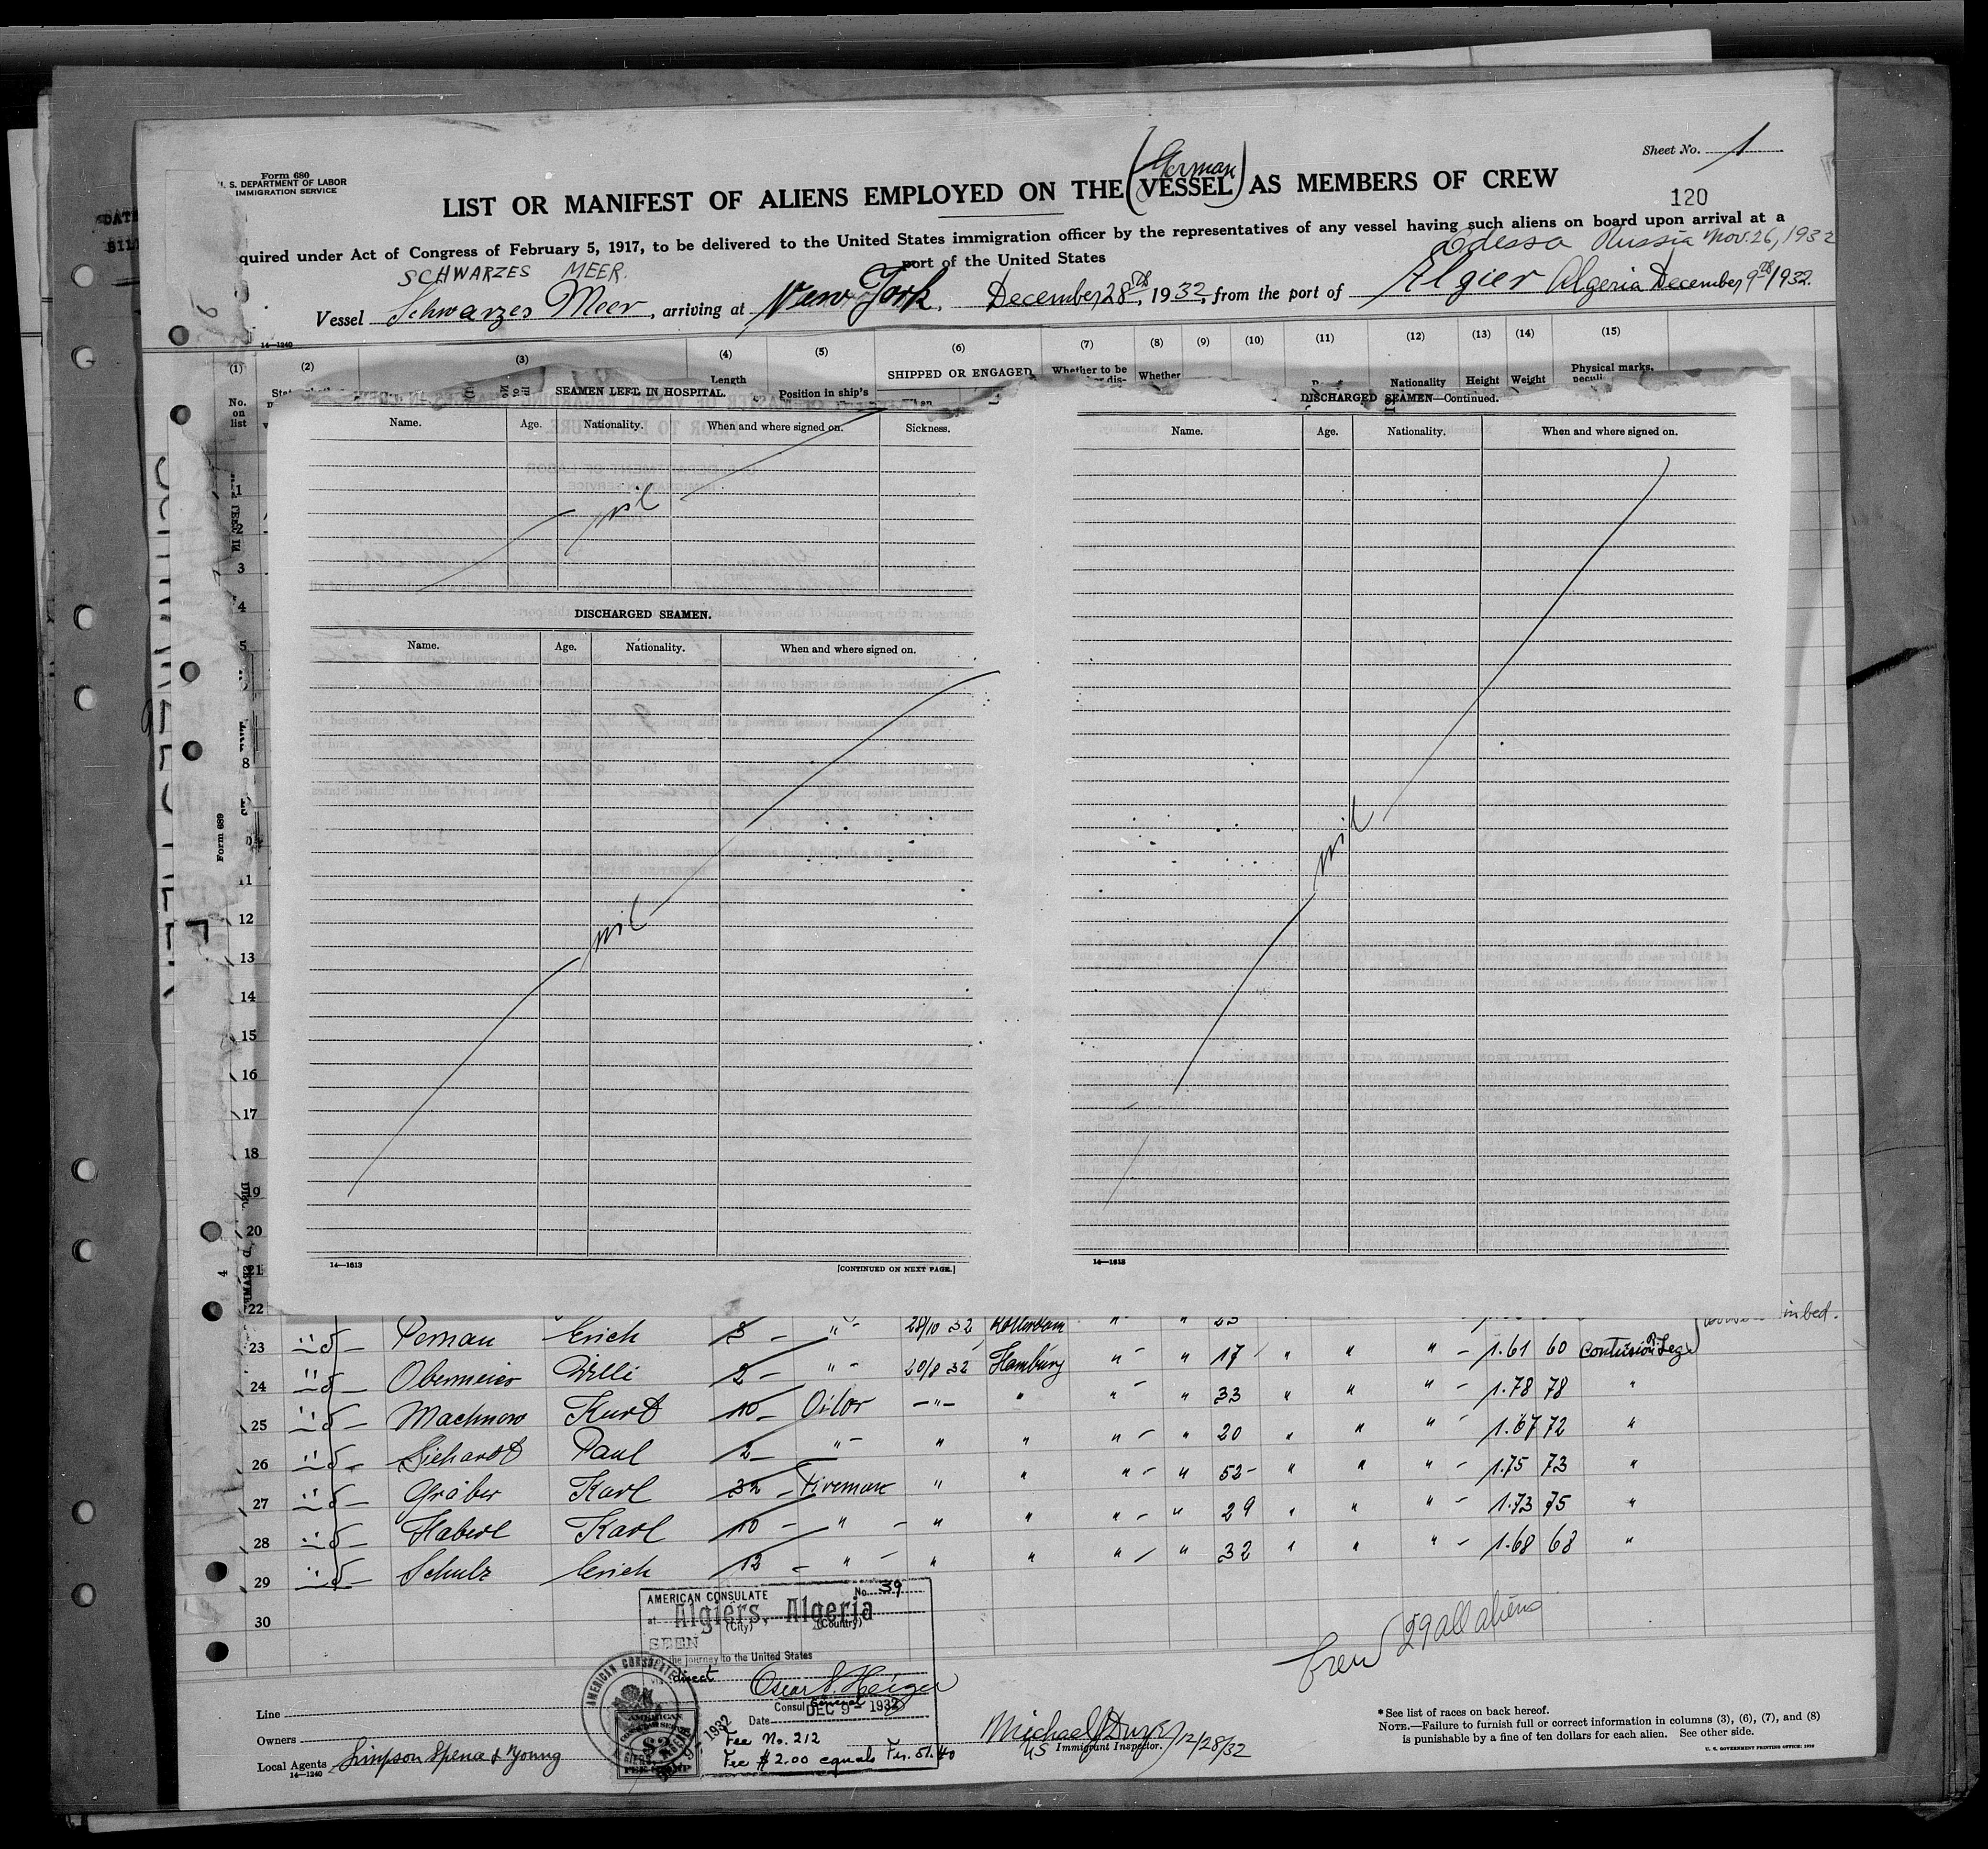 Sheet No. 1
Form 680
U. S. DEPARTMENT OF LABOR
IMMIGRATION SERVICE
German
LIST OR MANIFEST OF ALIENS EMPLOYED ON THE (VESSEL) AS MEMBERS OF CREW
120
quired under Act of Congress of February 5, 1917, to be delivered to the United States immigration officer by the representatives of any vessel having such aliens on board upon arrival at a
port of the United States
Odessa Russia Nov. 26, 1932
SCHWARZES MEER.
Vessel Schwarzes Meer, arriving at New York, December 28th, 1932, from the port of Algier Algeria December 9th 1932.
14—1240
(1) (2) (3) (4) (5) (6) (7) (8) (9) (10) (11) (12) (13) (14) (15)
No. on list
Length
Position in ship's
SHIPPED OR ENGAGED
Whether to be
Whether
Nationality
Height
Weight
Physical marks,
SEAMEN LEFT IN HOSPITAL.
Name. Age. Nationality. When and where signed on. Sickness.
nil
DISCHARGED SEAMEN.
Name. Age. Nationality. When and where signed on.
nil
14—1613
[CONTINUED ON NEXT PAGE.]
DISCHARGED SEAMEN—Continued.
Name. Age. Nationality. When and where signed on.
nil
14—1613
Form 689
1
3
4
5
8
11
12
13
14
15
16
17
18
19
20
21
22
in bed.
23 Erich 3 — " — 28/10 32 Rotterdam " " 23
24 Obermeier Willi 2 — " — 20/8 32 Hamburg " — " 17 " " " — 1.61 60 Contusion R. Leg
25 Machnow Kurt 10 — Oiler — " — " " — " 33 " " " — 1.78 78 "
26 Paul 2 — " — " " " — " 20 " " " — 1.67 72 "
27 Gräber Karl 32 — Fireman " " " — " 52 — " " " — 1.75 73 "
28 Haberl Karl 10 — " — " " " — " 29 " " " — 1.73 75 "
29 Schulz Erich 12 — " — " " " — " 32 " " " — 1.68 68 "
30
AMERICAN CONSULATE No. 39
at Algiers, Algeria
(City) (Country)
SEEN
the journey to the United States
direct
Consul General
Date DEC 9 - 1932
Fee No. 212
Fee $ 2.00 equals Frs. 51.40
AMERICAN CONSULATE
Crew 29 all aliens
Line
Owners
Local Agents Simpson Spence & Young
14—1240
US Immigrant Inspector. 12/28/32
* See list of races on back hereof.
NOTE.—Failure to furnish full or correct information in columns (3), (6), (7), and (8)
is punishable by a fine of ten dollars for each alien. See other side.
U. S. GOVERNMENT PRINTING OFFICE: